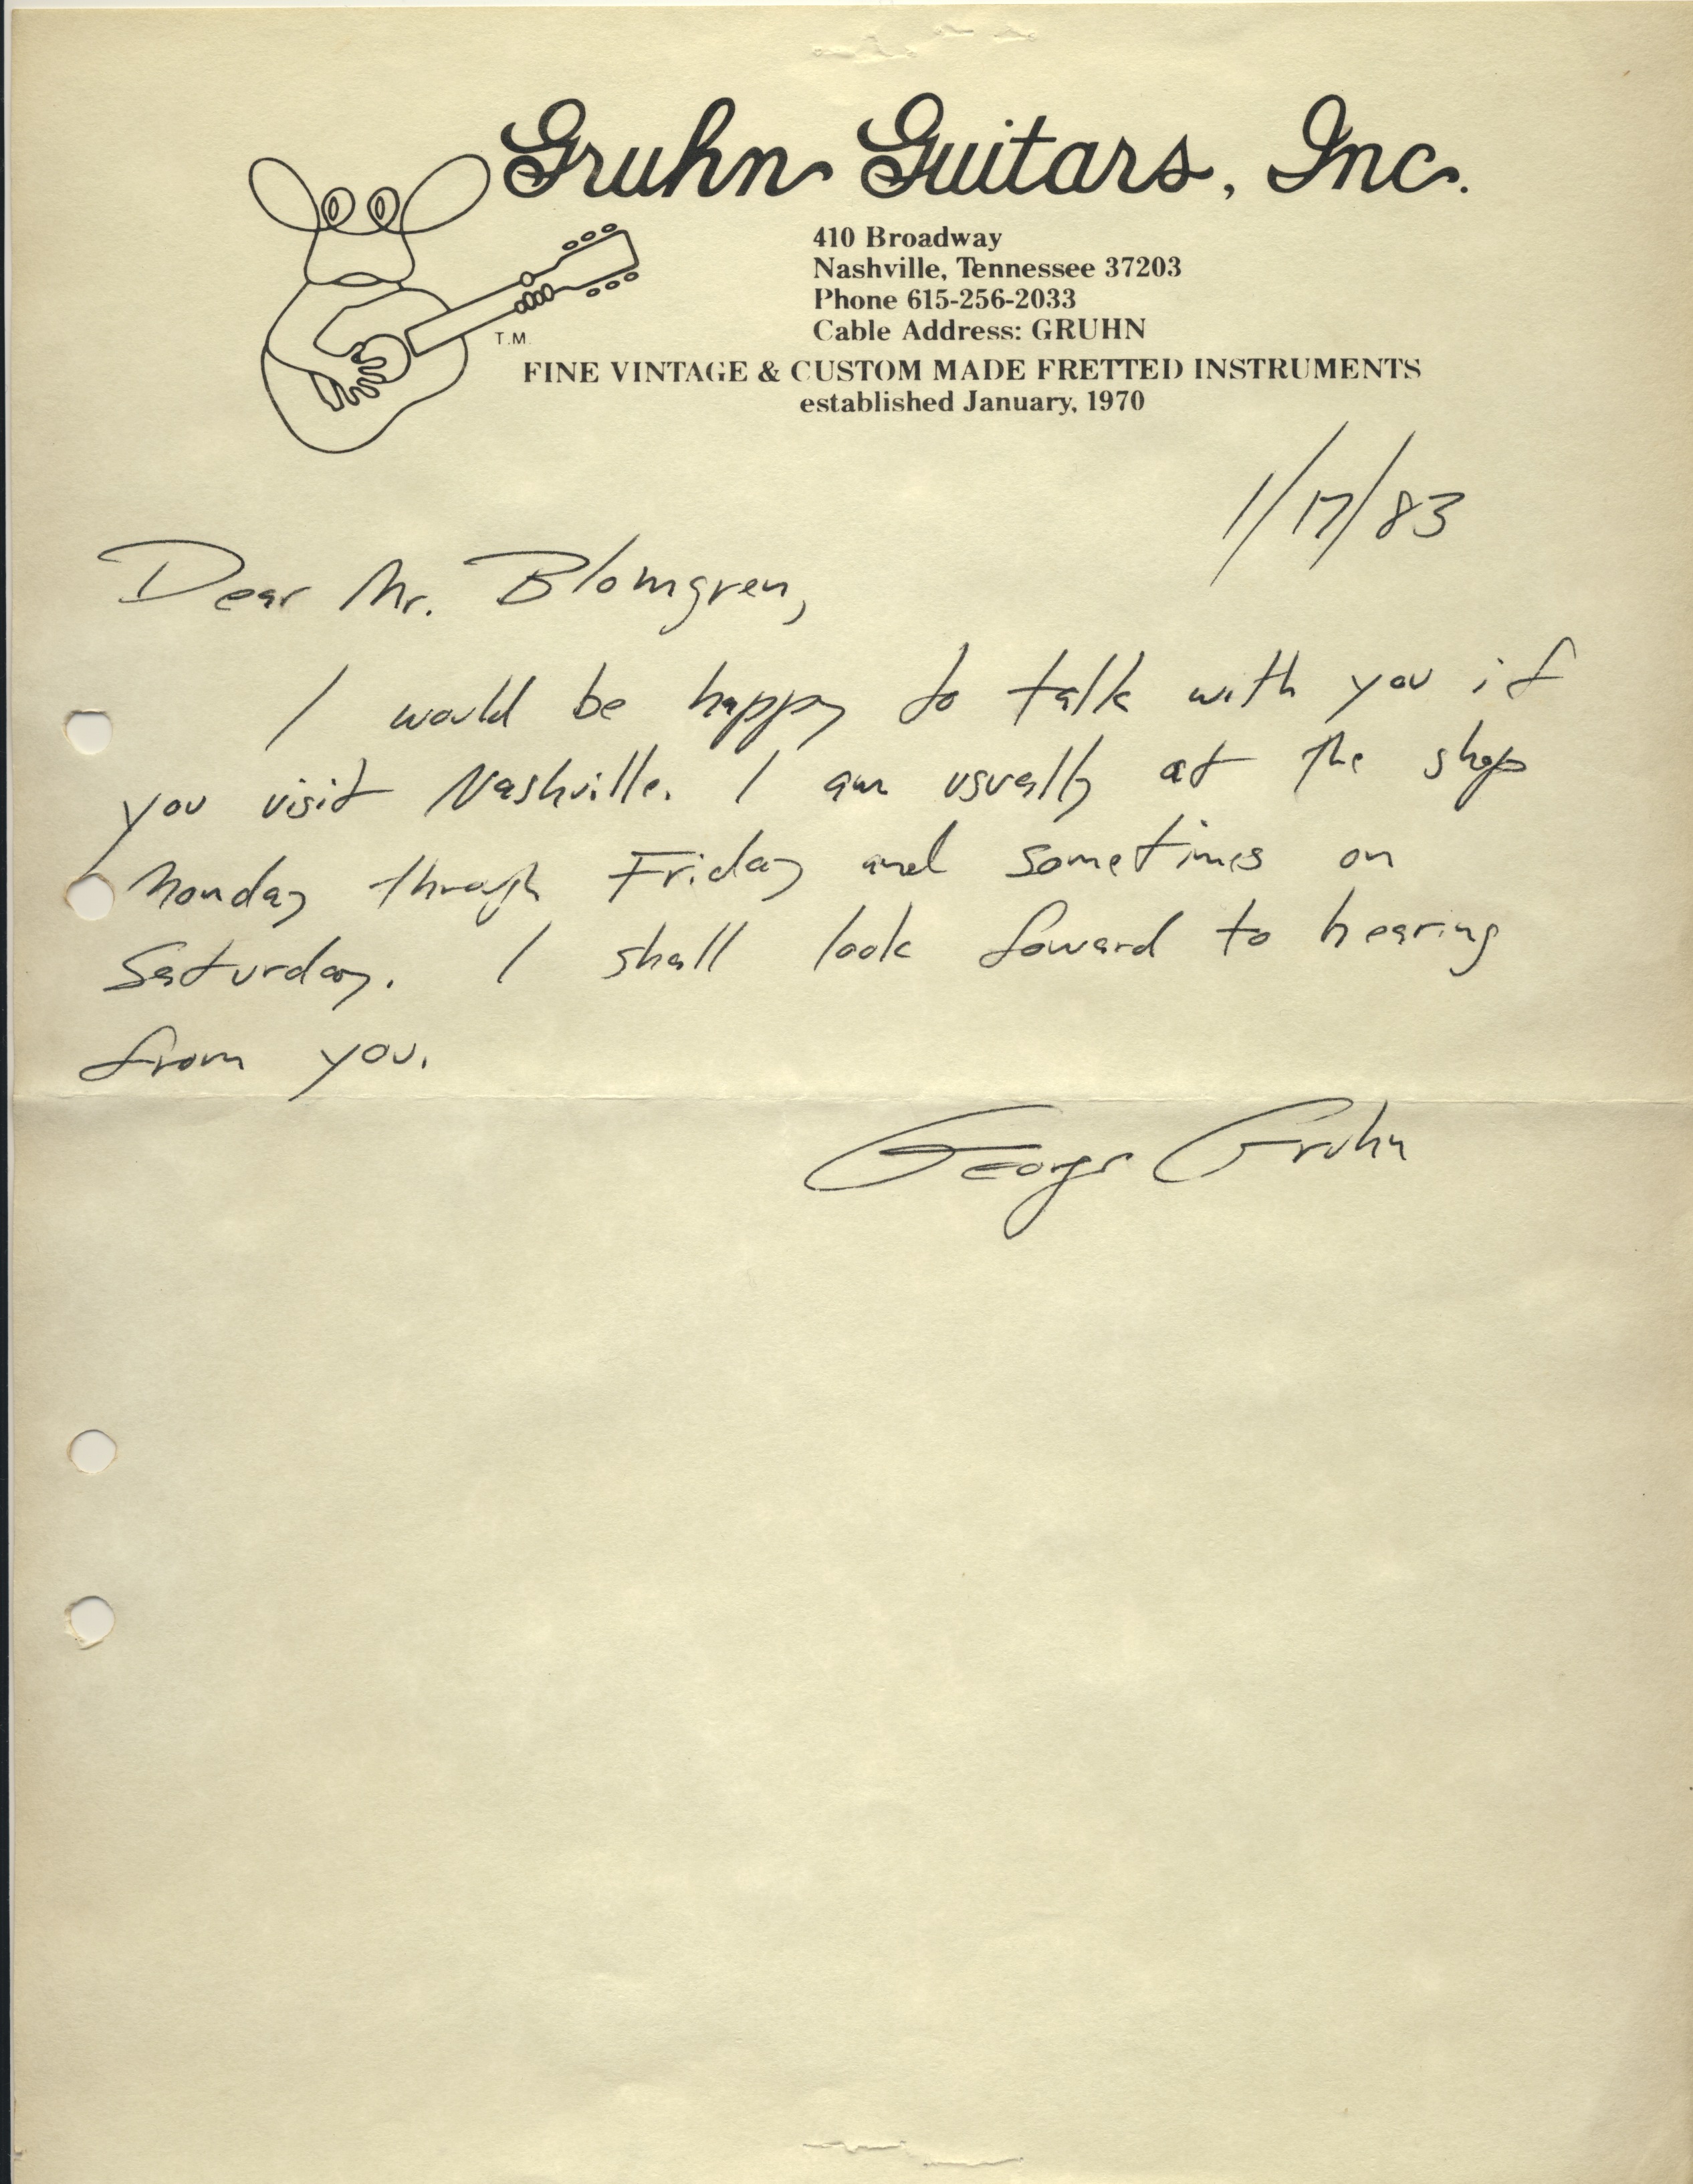 Gruhn Guitars, Inc.
410 Broadway
Nashville, Tennessee 37203
Phone 615-256-2033
Cable Address: GRUHN
T.M.
FINE VINTAGE & CUSTOM MADE FRETTED INSTRUMENTS
established January, 1970
1/17/83
Dear Mr. Blomgren,
I would be happy to talk with you if
you visit Nashville. I am usually at the shop
Monday through Friday and sometimes on
Saturday. I shall look foward to hearing
from you.
George Gruhn